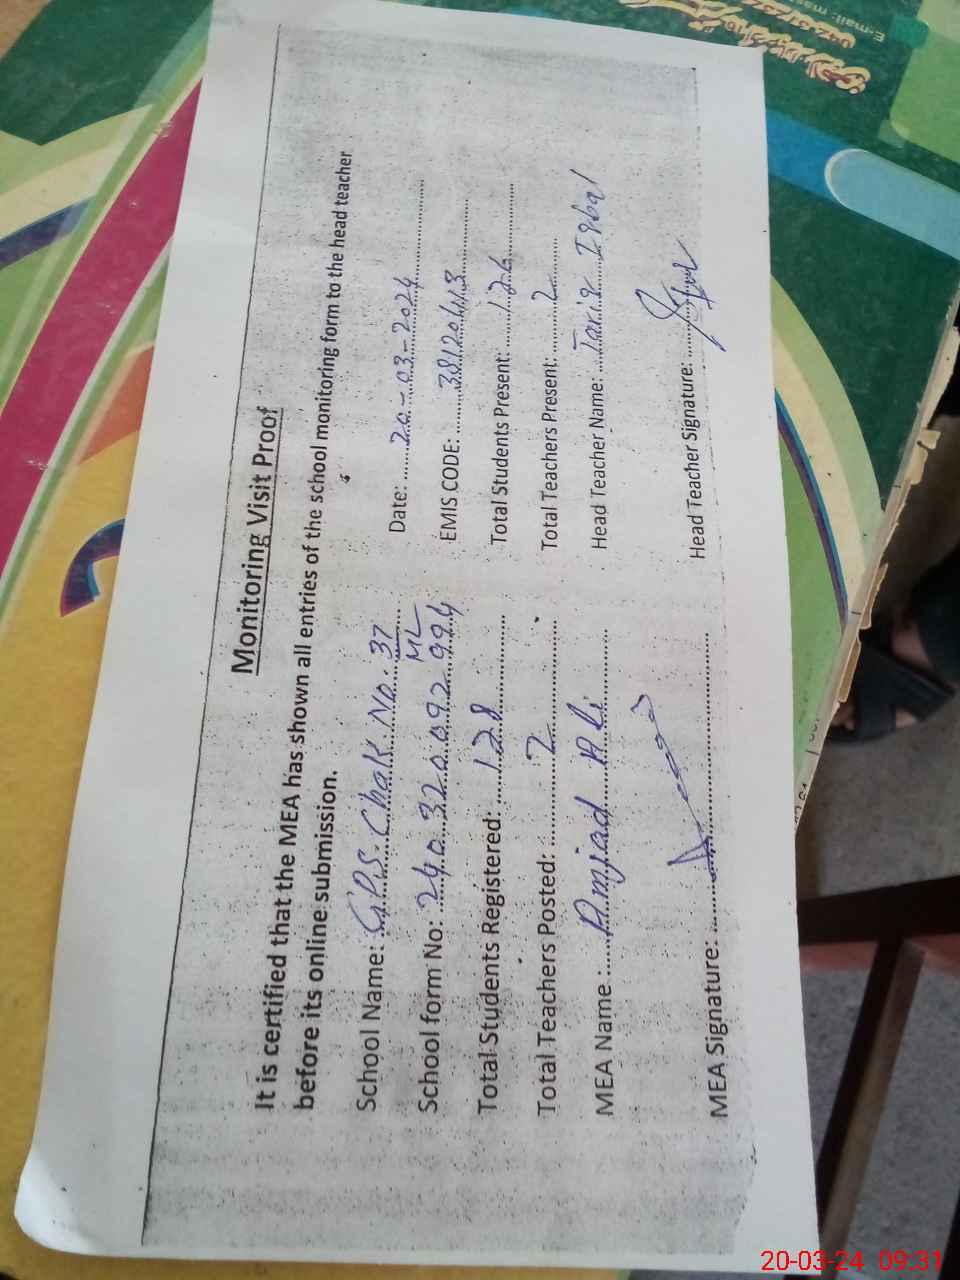 Monitoring Visit Proof
It is certified that the MEA has shown all entries of the school monitoring form to the head teacher
before its online submission.
School Name: GPS. Chak. No. 37 ML
Date: 20-03-2024
School form No: 240320092994
EMIS CODE: 38120443
Total Students Registered: 128
Total Students Present: 126
Total Teachers Posted: 2
Total Teachers Present: 2
MEA Name: Amjad Ali
Head Teacher Name: Tariq Iqbal
MEA Signature:
Head Teacher Signature:
E-mail: mas
20-03-24 09:31